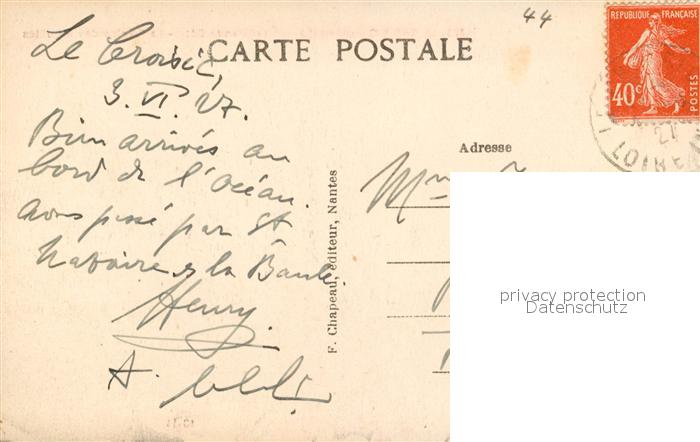 44
RÉPUBLIQUE FRANÇAISE
40c
POSTES
27
LOIRE
CARTE POSTALE
Le Croisic,
3.VI.27.
Bien arrivés au
bord de l'Océan.
Avons passé par St
Nazaire & la Baule
Henry
A.
Adresse
Mme
F. Chapeau, éditeur, Nantes
privacy protection
Datenschutz